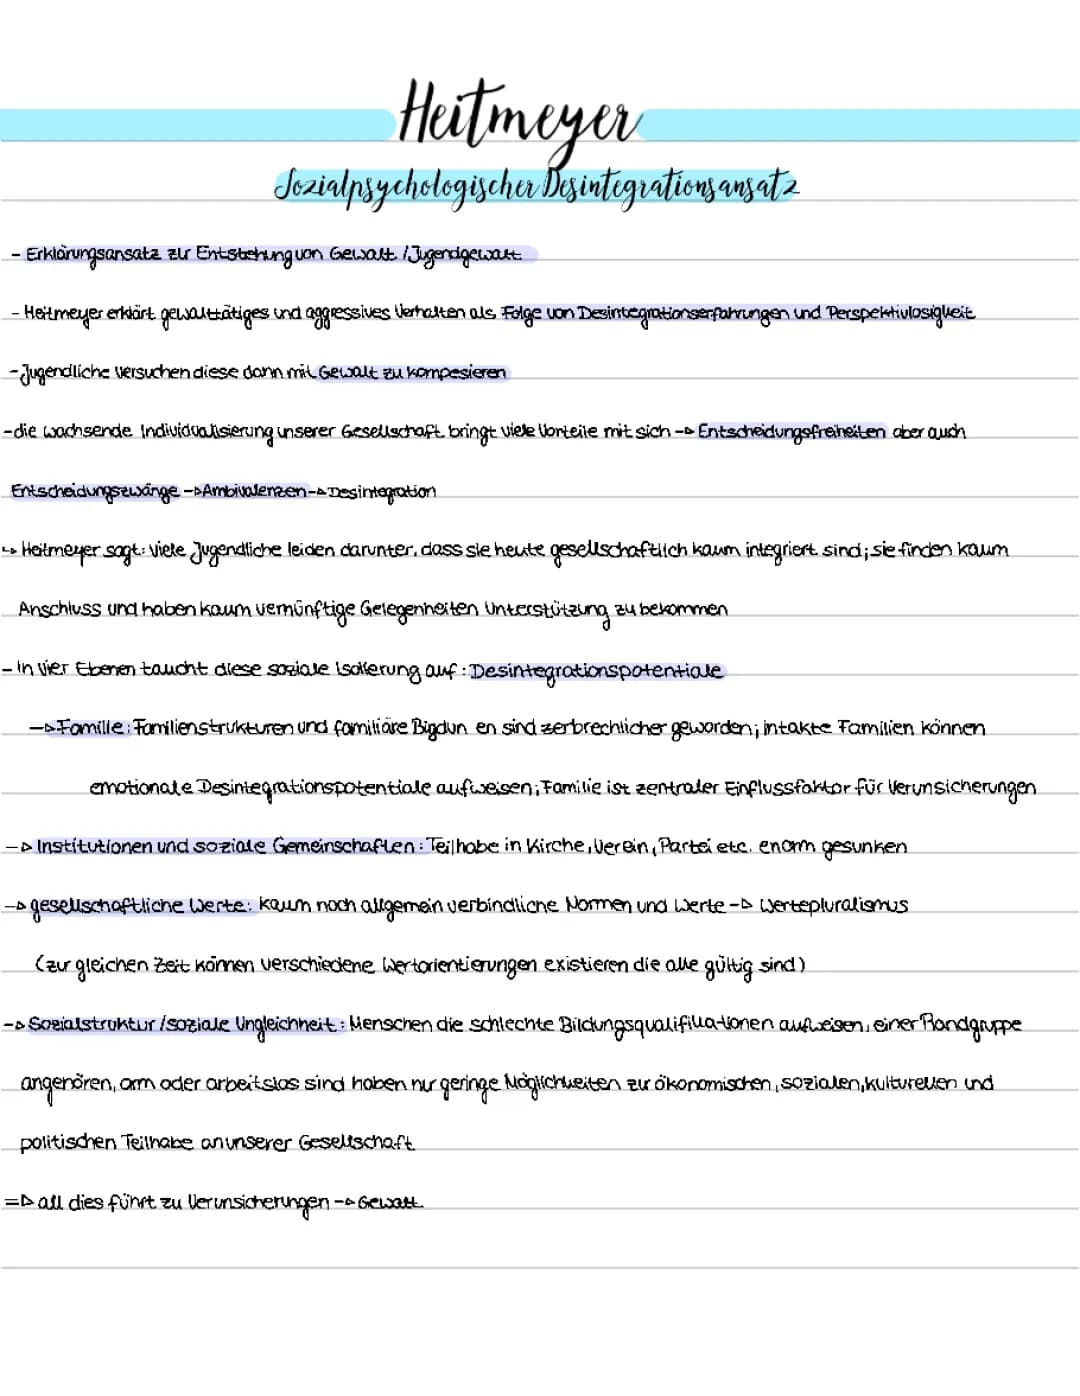 Heitmeyer
Sozialpsychologischer Desintegrationsansatz
- Erklärungsansatz zur Entstehung von Gewalt / Jugendgewalt
- Heitmeyer erklärt gewalttätiges und aggressives Verhalten als Folge von Desintegrationserfahrungen und Perspektivlosigkeit
- Jugendliche versuchen diese dann mit Gewalt zu kompesieren
- die wachsende Individualisierung unserer Gesellschaft bringt viele Vorteile mit sich -> Entscheidungsfreiheiten aber auch
Entscheidungszwänge -> Ambivalenzen -> Desintegration
↳ Heitmeyer sagt: viele Jugendliche leiden darunter, dass sie heute gesellschaftlich kaum integriert sind; sie finden kaum
Anschluss und haben kaum vernünftige Gelegenheiten Unterstützung zu bekommen
- In vier Ebenen taucht diese soziale Isolierung auf: Desintegrationspotentiale
-> Familie: Familienstrukturen und familiäre Bigdun en sind zerbrechlicher geworden; intakte Familien können
emotionale Desintegrationspotentiale aufweisen; Familie ist zentraler Einflussfaktor für Verunsicherungen
-> Institutionen und soziale Gemeinschaften: Teilhabe in Kirche, Verein, Partei etc. enorm gesunken
-> gesellschaftliche Werte: kaum noch allgemein verbindliche Normen und Werte -> Wertepluralismus
(zur gleichen Zeit können verschiedene Wertorientierungen existieren die alle gültig sind)
-> Sozialstruktur / soziale Ungleichheit: Menschen die schlechte Bildungsqualifikationen aufweisen, einer Randgruppe
angehören, arm oder arbeitslos sind haben nur geringe Möglichkeiten zur ökonomischen, sozialen, kulturellen und
politischen Teilhabe an unserer Gesellschaft
=> all dies führt zu Verunsicherungen -> Gewalt